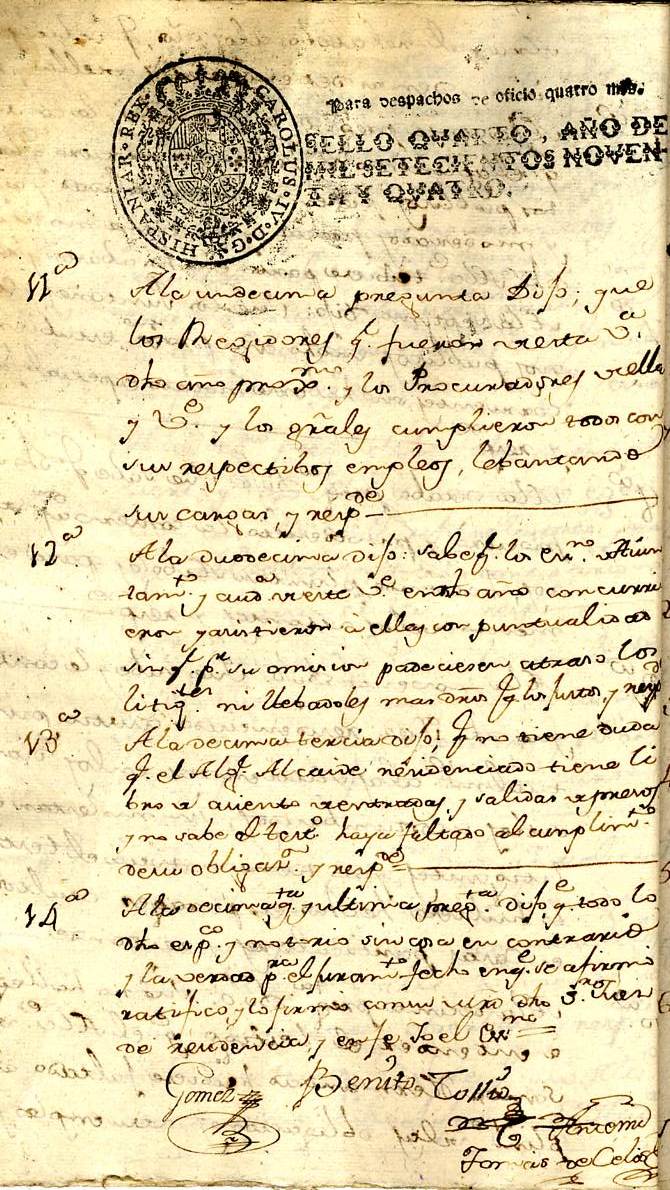 CAROLUS · IV · D · G · HISPANIAR · REX ·
Para despachos de oficio quatro mrs.
SELLO QVARTO, AÑO DE
MIL SETECIENTOS NOVEN-
TA Y QVATRO.
11ª
A la undecima pregunta Dijo; que
los Regidores q.e fueron de esta V.ª
dho año proximo y los Procuradores de ella
y los grãles cumplieron todos con
sus respectibos empleos, lebantando
sus cargas, y resp.de
12ª
A la duodecima dijo: sabe q.e los es.nos
en dho año concurri
eron y asistieron à ellas con puntualidad
sin q.e p.r su omision padeciesen atraso los
litig.tes ni llebadoles mas dros q.e los justos, y resp.de
13ª
A la decima tercia dijo; q.e no tiene duda
q.e el Alg.l Alcaide residenciado tiene li
bro de asiento de entradas, y salidas de presos
y no sabe el test.o haya faltado al cumplim.to
de su obligaz.n y resp.de
14ª
A la decima q.ta y ultima preg.ta dijo q.e todo lo
dho es p.co y notorio sin cosa en contrario
y la verdad p.ra el juram.to fecho en q.e se afirmó
ratificó y lo firmó con su mrd dho S.r Juez
de residencia, y en fe Yo el Es.no
Gomez Benito
Antonio
de Celis